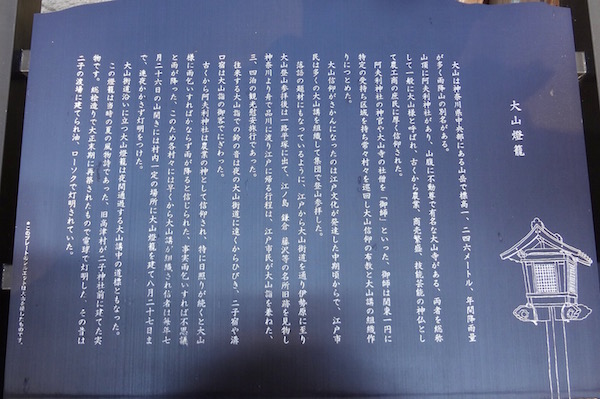 大山燈籠
大山は神奈川県中央部にある山岳で標高一、二四六メートル、年間降雨量
が多く雨降山の別名がある。
山頂に阿夫利神社があり、山腹に不動尊で有名な大山寺がある、両者を総称
して一般に大山様と呼ばれ、古くから農業、商売繁盛、技能芸能の神仏とし
て農工商の庶民に厚く信仰された。
阿夫利神社の神官や大山寺の社僧を「御師」といった、御師は関東一円に
特定の受持ち区域を持ち常々村々を巡回し大山信仰の布教と大山講の組織作
りにつとめた。
大山信仰がさかんになったのは江戸文化が発達した中期頃からで、江戸市
民は多くの大山講を組織して集団で登山参拝した。
落語の題材にもなっているように、江戸から大山街道を通り伊勢原に至り
大山登山参拝後は一路平塚に出て、江ノ島 鎌倉 藤沢等の名所旧跡を見物し
神奈川より舟で品川に渡り江戸に帰る行程は、江戸市民が大山詣を兼ねた、
三、四泊の観光慰安旅行であった。
往来する大山詣での鈴の音は夜の大山街道に遠くからひびき、二子宿や溝
口宿は大山詣の御客でにぎわった。
古くから阿夫利神社は農業の神として信仰され、特に日照りが続くと大山
様に雨乞いすればかならず雨が降ると信じられた、事実雨乞いすれば不思議
と雨が降った、このため各村々には早くから大山講が組織され信者は毎年七
月二十六日の山開きには村内一定の場所に大山燈籠を建て八月二十七日ま
で、連夜かかさず灯明をつけた。
大山街道沿いに立つ大山燈籠は夜間通過する大山講中の道標ともなった。
この燈籠は当時の夏の風物詩であった、旧高津村が二子神社前に建てた実
物です。総桧造りで大正末期に再築されたもので電球で灯明した、その昔は
二子の波場に建てられ油、ローソクで灯明されていた。